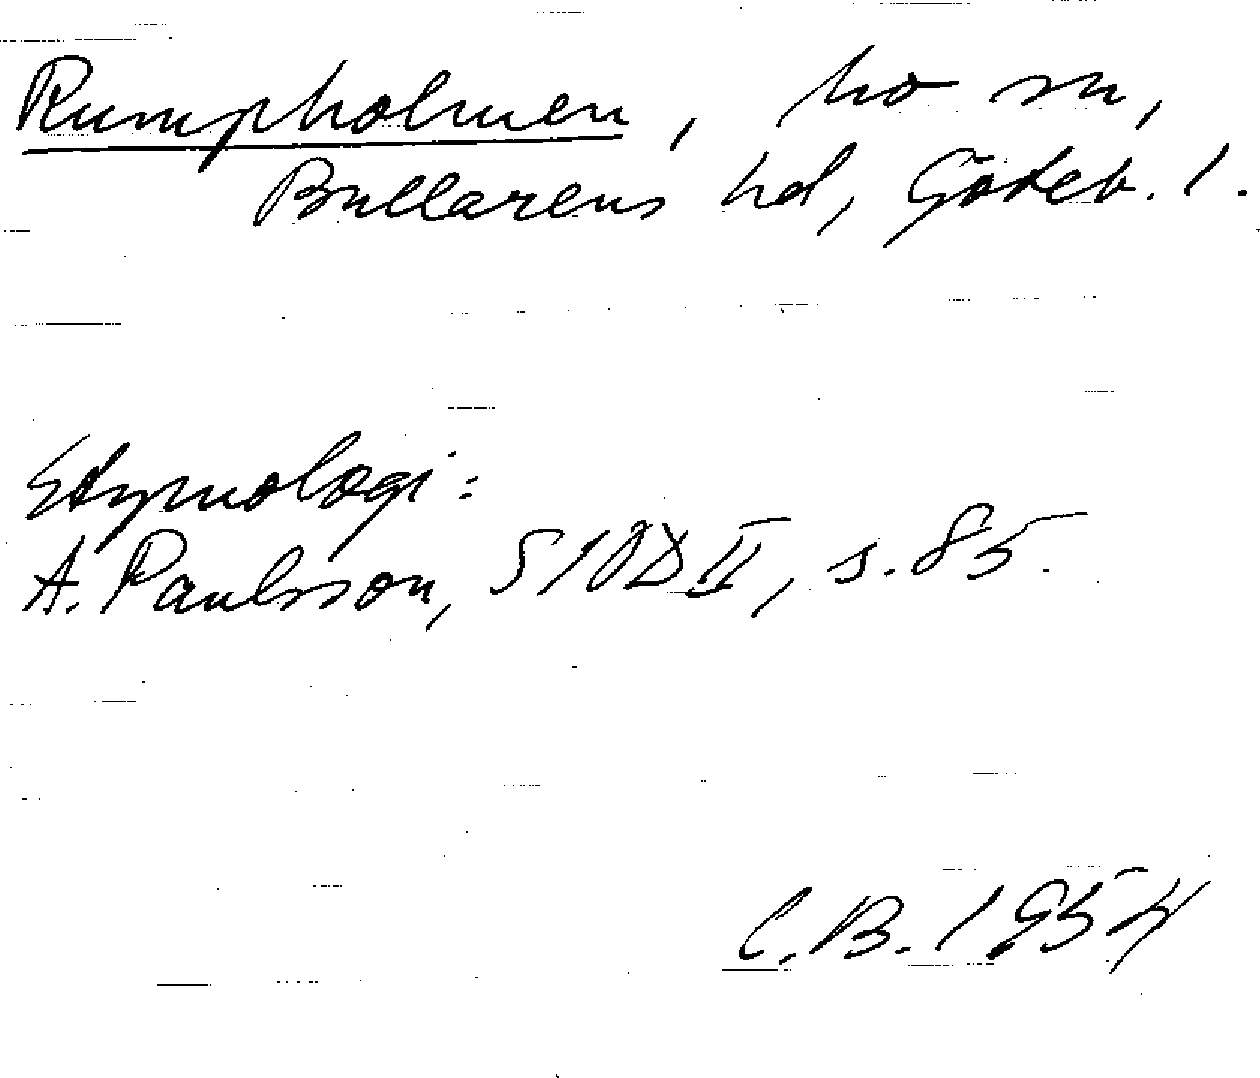 Rumpholmen, Mo sn,
Bullarens hd, Göteb. l.
Etymologi:
A. Paulsson, SIOD II, s. 85.
C.B. 1954